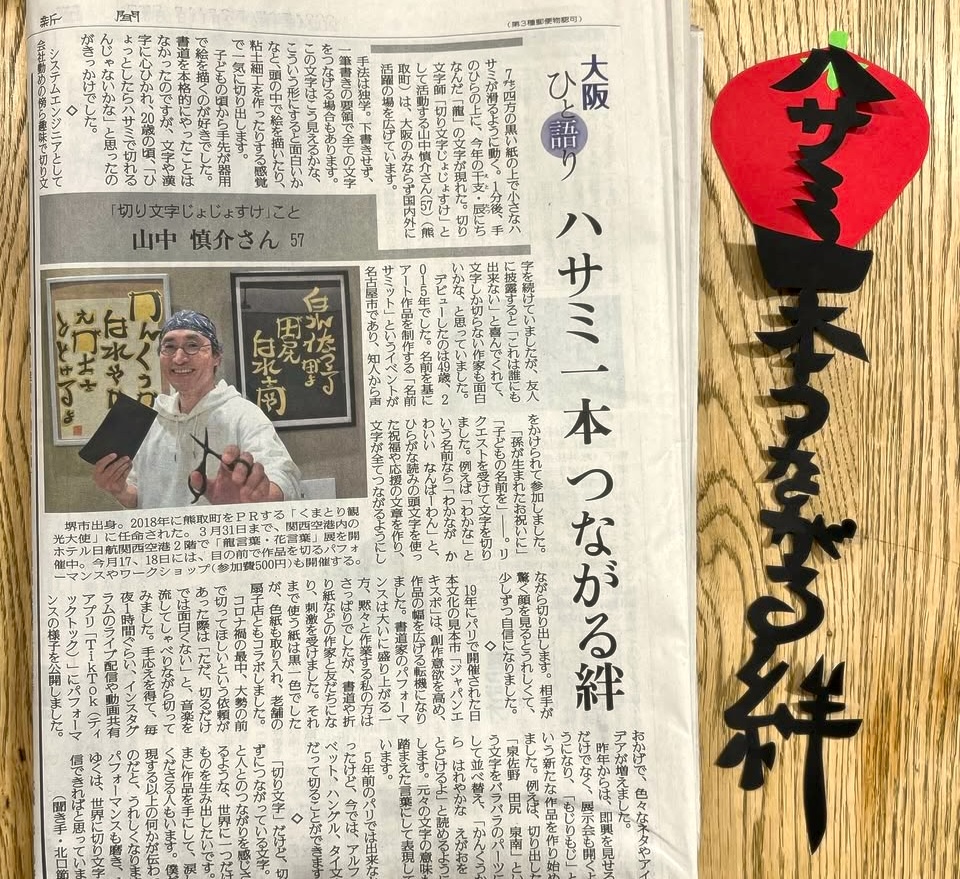 新聞
(第3種郵便物認可)
大阪
ひと語り
ハサミ一本 つながる絆
7㌢四方の黒い紙の上で小さなハ
サミが滑るように動く。1分後、手
のひらの上に、今年の干支・辰にち
なんだ「龍」の文字が現れた。切り
文字師「切り文字じょじょすけ」と
して活動する山中慎介さん(57)(熊
取町)は、大阪のみならず国内外に
活躍の場を広げています。
手法は独学。下書きせず、
一筆書きの要領で全ての文字
をつなげる場合もあります。
この文字はこう見えるかな、
こういう形にすると面白いか
なと、頭の中で絵を描いたり、
粘土細工を作ったりする感覚
で一気に切り出します。
子どもの頃から手先が器用
で絵を描くのが好きでした。
書道を本格的にやったことは
なかったのですが、文字や漢
字に心ひかれ、20歳の頃、「ひ
ょっとしたらハサミで切れる
んじゃないかな」と思ったの
がきっかけでした。
◇
システムエンジニアとして
会社勤めの傍ら趣味で切り文
「切り文字じょじょすけ」こと
山中 慎介さん 57
字を続けていましたが、友人
に披露すると「これは誰にも
出来ない」と喜んでくれて、
文字しか切らない作家も面白
いかな、と思っていました。
デビューしたのは49歳、2
015年でした。名前を基に
アート作品を制作する「名前
サミット」というイベントが
名古屋市であり、知人から声
をかけられて参加しました。
「孫が生まれたお祝いに」
「子どもの名前を」――。リ
クエストを受けて文字を切り
ました。例えば「わかな」と
いう名前なら「わかなが か
わいい なんばーわん」と、
ひらがな読みの頭文字を使っ
た祝福や応援の文章を作り、
文字が全てつながるようにし
堺市出身。2018年に熊取町をPRする「くまとり観
光大使」に任命された。3月31日まで、関西空港内の
ホテル日航関西空港2階で「龍言葉・花言葉」展を開
催中。今月17、18日には、目の前で作品を切るパフォ
ーマンスやワークショップ(参加費500円)も開催する。
ながら切り出します。相手が
驚く顔を見るとうれしくて、
少しずつ自信になりました。
◇
19年にパリで開催された日
本文化の見本市「ジャパンエ
キスポ」は、創作意欲を高め、
作品の幅を広げる転機になり
ました。書道家のパフォーマ
ンスは大いに盛り上がる一
方、黙々と作業する私の方は
さっぱりでしたが、書道や折
り紙などの作家と友だちにな
り、刺激を受けました。それ
まで使う紙は黒一色でした
が、色紙も取り入れ、老舗の
扇子店ともコラボしました。
コロナ禍の最中、大勢の前
で切ってほしいという依頼が
あった際は「ただ、切るだけ
では面白くない」と、音楽を
流してしゃべりながら切って
みました。手応えを得て、毎
夜1時間ぐらい、インスタグ
ラムのライブ配信や動画共有
アプリ「TikTok(ティ
ックトック)」にパフォーマ
ンスの様子を公開しました。
おかげで、色々なネタやアイ
デアが増えました。
昨年からは、即興を見せる
だけでなく、展示会も開くよ
うになり、「もじりもじ」と
いう新たな作品を作り始め
ました。例えば、切り出した
「泉佐野 田尻 泉南」とい
う文字をバラバラのパーツに
して並べ替え、「かんくうか
ら はれやかな えがおを
とどけるよ」と読めるように
します。元々の文字の意味も
踏まえた言葉にして表現して
います。
5年前のパリでは出来なか
ったけど、今では、アルファ
ベット、ハングル、タイ文字
だって切ることができます。
◇
「切り文字」だけど、切ら
ずにつながっている文字。
と人とのつながりを感じさせ
るような、世界に一つだけの
ものを生み出したいです。
まに作品を手にして、涙
くださる人もいます。僕が
現する以上の何かが伝わ
のだと、うれしくなりま
パフォーマンスも磨き、
ゆくは、世界に切り文字
信できればと思っていま
(聞き手・北口節
ハサミ一本つながる絆